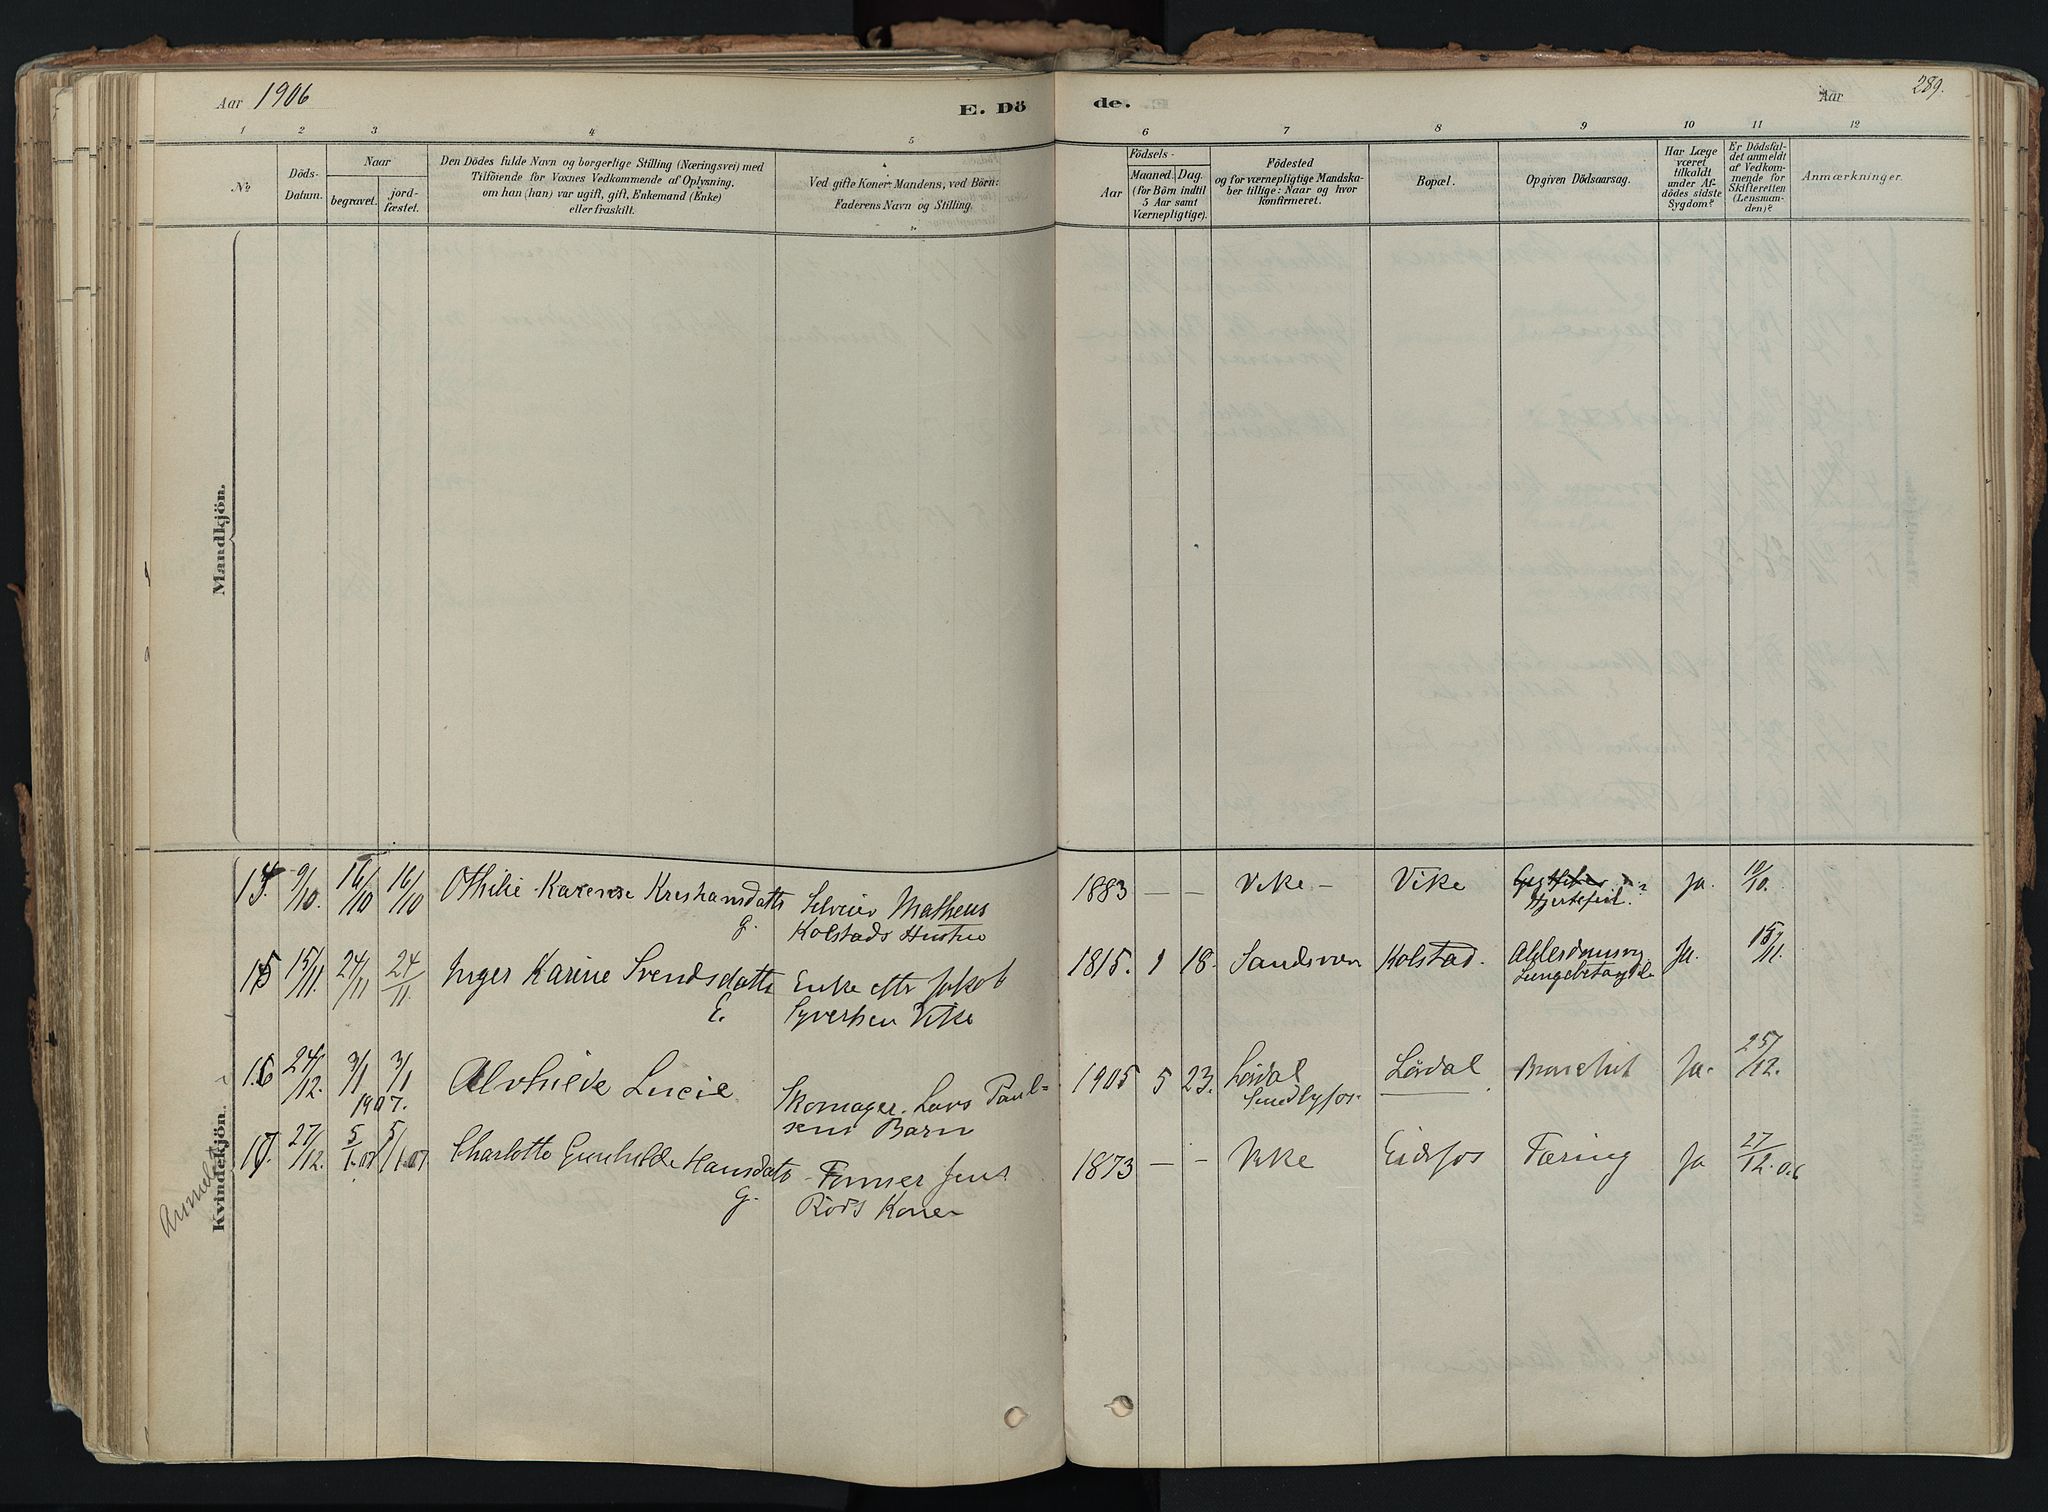 Aar 1906
E. Dö
de.
Aar
289.
1 2 3 4 5 6 7 8 9 10 11 12
№
Döds-
Datum.
Naar
begravet.
jord-
fæstet.
Den Dödes fulde Navn og borgerlige Stilling (Næringsvei) med
Tilföiende for Voxnes Vedkommende af Oplysning,
om han (hun) var ugift, gift, Enkemand (Enke)
eller fraskilt.
Ved gifte Koner: Mandens, ved Börn:
Faderens Navn og Stilling.
Födsels-
Aar
Maaned. Dag.
(for Börn indtil
5 Aar samt
Værnepligtige).
Födested
og for værnepligtige Mandska-
ber tillige: Naar og hvor
konfirmeret.
Bopæl.
Opgiven Dödsaarsag.
Har Læge
været
tilkaldt
under Af-
dödes sidste
Sygdom?
Er Dödsfal-
det anmeldt
af Vedkom-
mende for
Skifteretten
(Lensman-
den)?
Anmærkninger.
Mandkjön.
Kvindekjön.
14. 9/10. 16/10 16/10 Othilie Karense Kreshansdatter
G.
Selveier Matheus
Kolstads Hustru
1883 — — Vike – Vike
Hjertefeil.
Ja. 10/10.
15 15/11. 24/11 24/11. Inger Karine Svendsdatter
E.
Enke efter Jakob
Syversen Vike
1815. 9 18. Sandsvær Kolstad. Alderdomssvag
Lungebetændelse
Ja. 15/11.
16 24/12. 3/1 3/1
1907.
Alvhilde Lucie
Skomager Lars Paul=
sens Barn
1905 5 23. Lördal
Lördal Bronchit Ja. 25/12.
17. 27/12. 5/1.07 5/1.07 Charlotte Gunhilde Hansdatter
G.
Former Jens
Röds Kone
1873 — — Vike Eidsfos Tæring Ja 27/12.06
Anmeldt